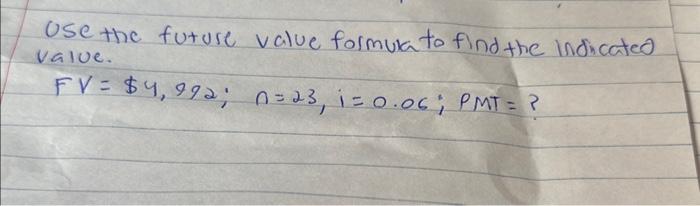 Use the future value formula to find the indicated
value.
FV = $4,992; n=23, i=0.06; PMT = ?